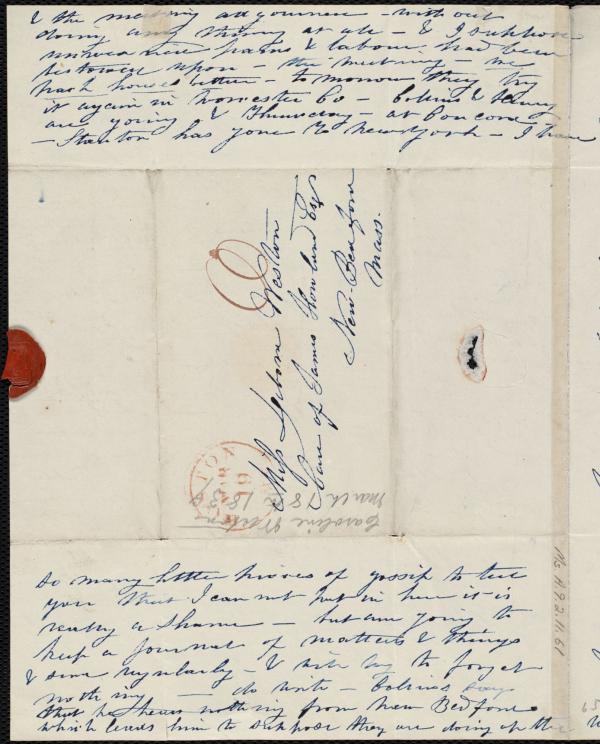 & the meeting adjourned - without
doing any thing at all - & I suppose
immense pains & labour had been
bestowed upon - the meeting - we
had houses better - tomorrow they try
it again in Worcester Co - Collins &
are going & Thursday - at Concord
- Stanton has gone to New York - I have
Miss Debora Weston
Care of James Howland Esqr
New-Bedford
Mass.
MAR
19
Caroline Weston
March 18
So many little pieces of gossip to tell
you that I can not put in here it is
really a shame - but am going to
keep a journal of matters & things
& send regularly - & will try to forget
nothing - do write - Collins says
that he hears nothing from New Bedford
which leads him to suppose they are doing up the
Ms. A.9.2.11.61